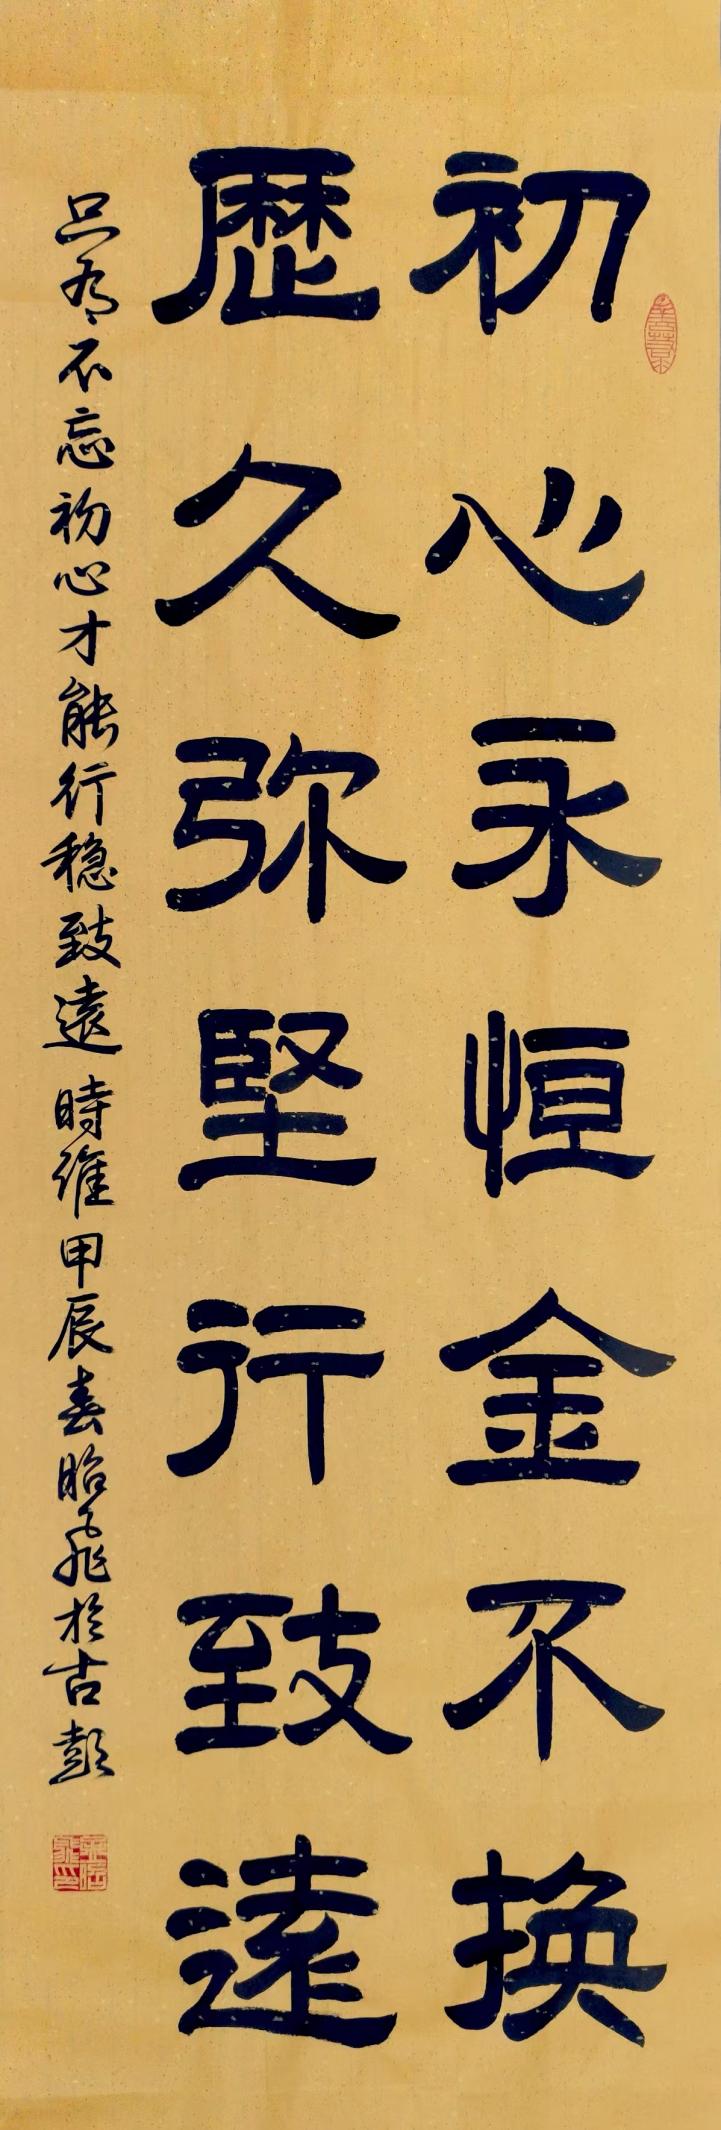 初心永恒金不换
歷久弥堅行致遠
只有不忘初心才能行稳致遠 時維甲辰春昭飛於古彭